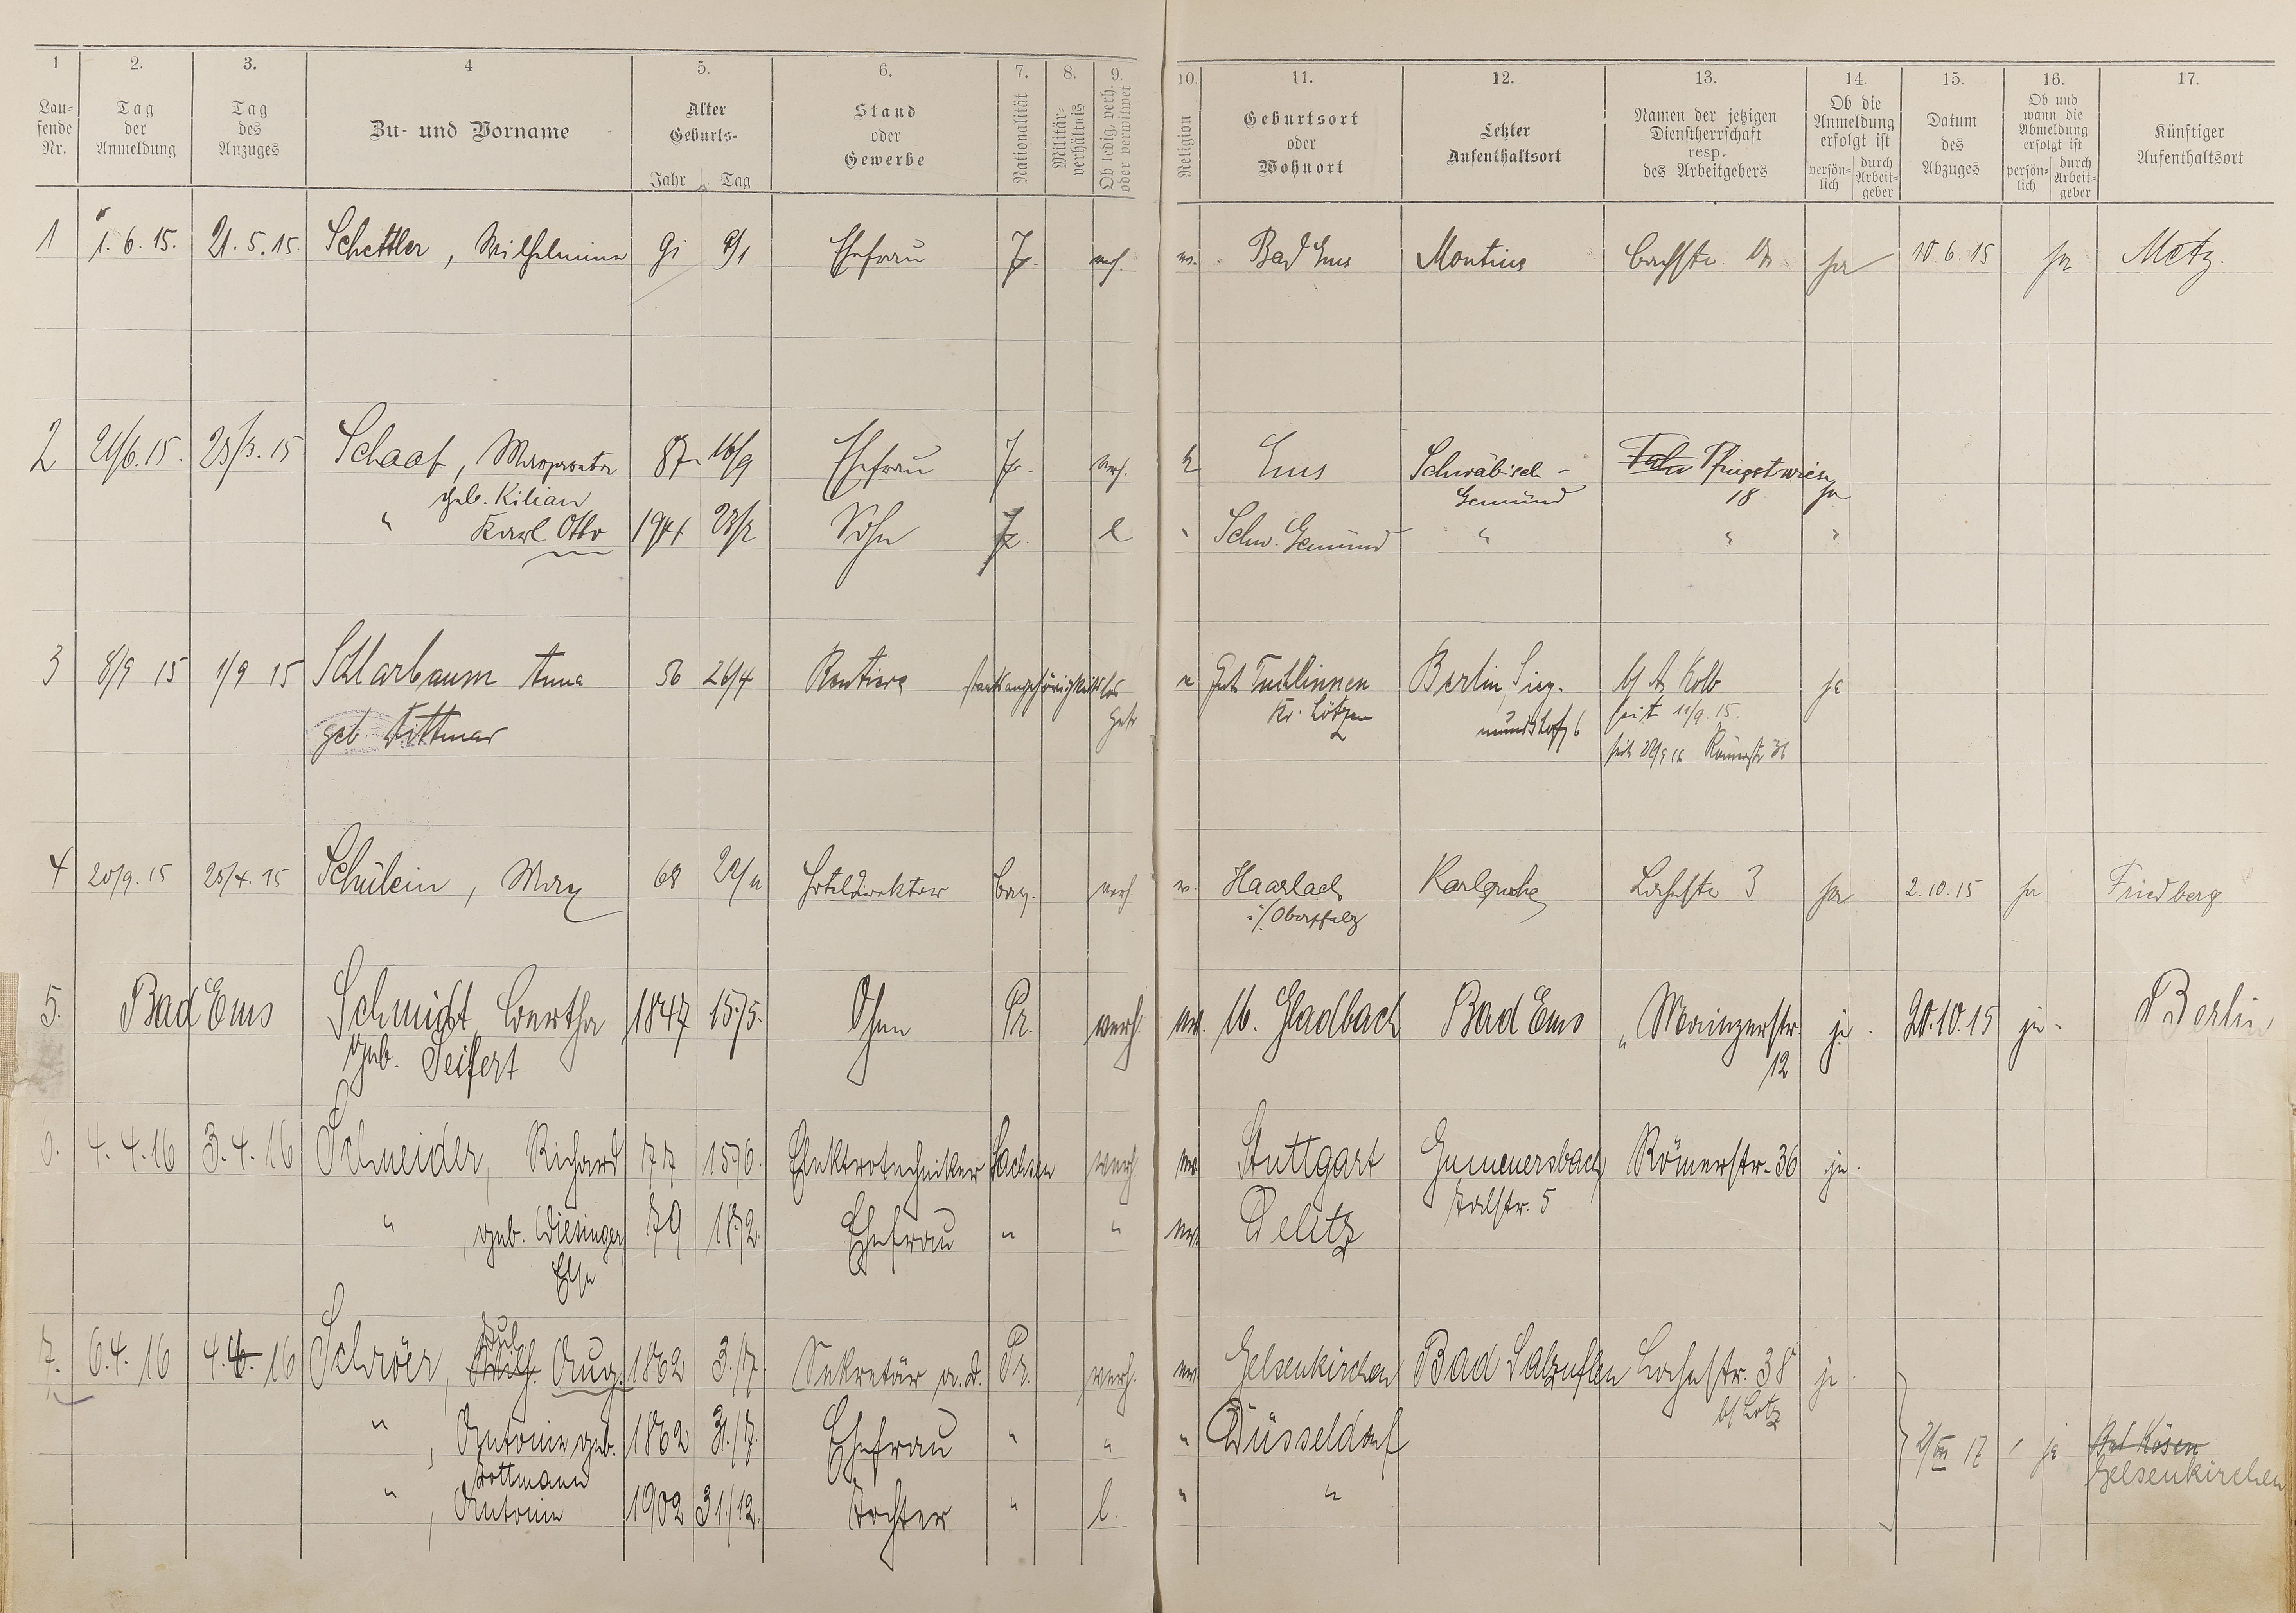 1 2. 3. 4 5. 6. 7. 8. 9. 10. 11. 12. 13. 14. 15. 16. 17.
Laufende Nr.
Tag der Anmeldung
Tag des Anzuges
Zu- und Vorname
Alter Geburts-
Jahr Tag
Stand oder Gewerbe
Nationalität
Militär-verhältnis
Ob ledig, verh. oder verwitwet
Religion
Geburtsort oder Wohnort
Letzter Aufenthaltsort
Namen der jetzigen Dienstherrschaft resp. des Arbeitgebers
Ob die Anmeldung erfolgt ist
persön-lich durch Arbeit-geber
Datum des Abzuges
Ob und wann die Abmeldung erfolgt ist
persön-lich durch Arbeit-geber
Künftiger Aufenthaltsort
1 1. 6. 15. 21. 5. 15. Schettler, Wilhelmine Ehefrau Pr. verh. Bad Ems ja 10. 6. 15 ja Metz.
2 21/6. 15. Schaaf, Margareta 87 16/9 Ehefrau Pr. verh. k Ems Schwäbisch- Pfingstwiese ja
geb. Kilian Gemünd 18
" Karl Otto 1914 Sohn Pr. l " Schw. Gemünd " " "
3 8/9 15 1/9 15 Schlarbaum Anna 56 26/4 Rentiere staatsangehörigkeitslos Gut Berlin, Sieg- Kolb ja
Kr. Lötzen mundshof 6 seit 11/9. 15.
geb. Dittmar seit Römerstr 36
4 20/9. 15 25/4. 15 Schülein, Max 68 Hoteldirektor bay. verh Haarlach Karlsruhe Lahnstr 3 ja 2. 10. 15 ja Friedberg
i/. Oberpfalz
5. Bad Ems Schmidt Bertha 1847 15./5. Ohne Pr. verh. ev. M. Gladbach Bad Ems " Mainzerstr. ja. 20. 10. 15 ja. Berlin
geb. Seifert 12
6. 4. 4. 16 3. 4. 16 Schneider, Richard 77 15./6. Elektrotechniker Sachsen verh. ev. Stuttgart Gummersbach Römerstr. 36 ja.
Talstr. 5
" , geb. Wiesinger 79 18./2. Ehefrau " " ev. Delitz
Else
7. 6. 4. 16 4. 4. 16 Schröer, Jul. Aug. 1862 3./7. Sekretär a. d. Pr. verh. ev. Gelsenkirchen Bad Salzuflen Lahnstr. 38 ja.
b/ Lotz
" , Antonie geb. 1862 31./7. Ehefrau " " " Düsseldorf 2/VIII 17 ja Bad Kösen
Rottmann Gelsenkirchen
" , Antonie 1902 31./12. Tochter " l. " "